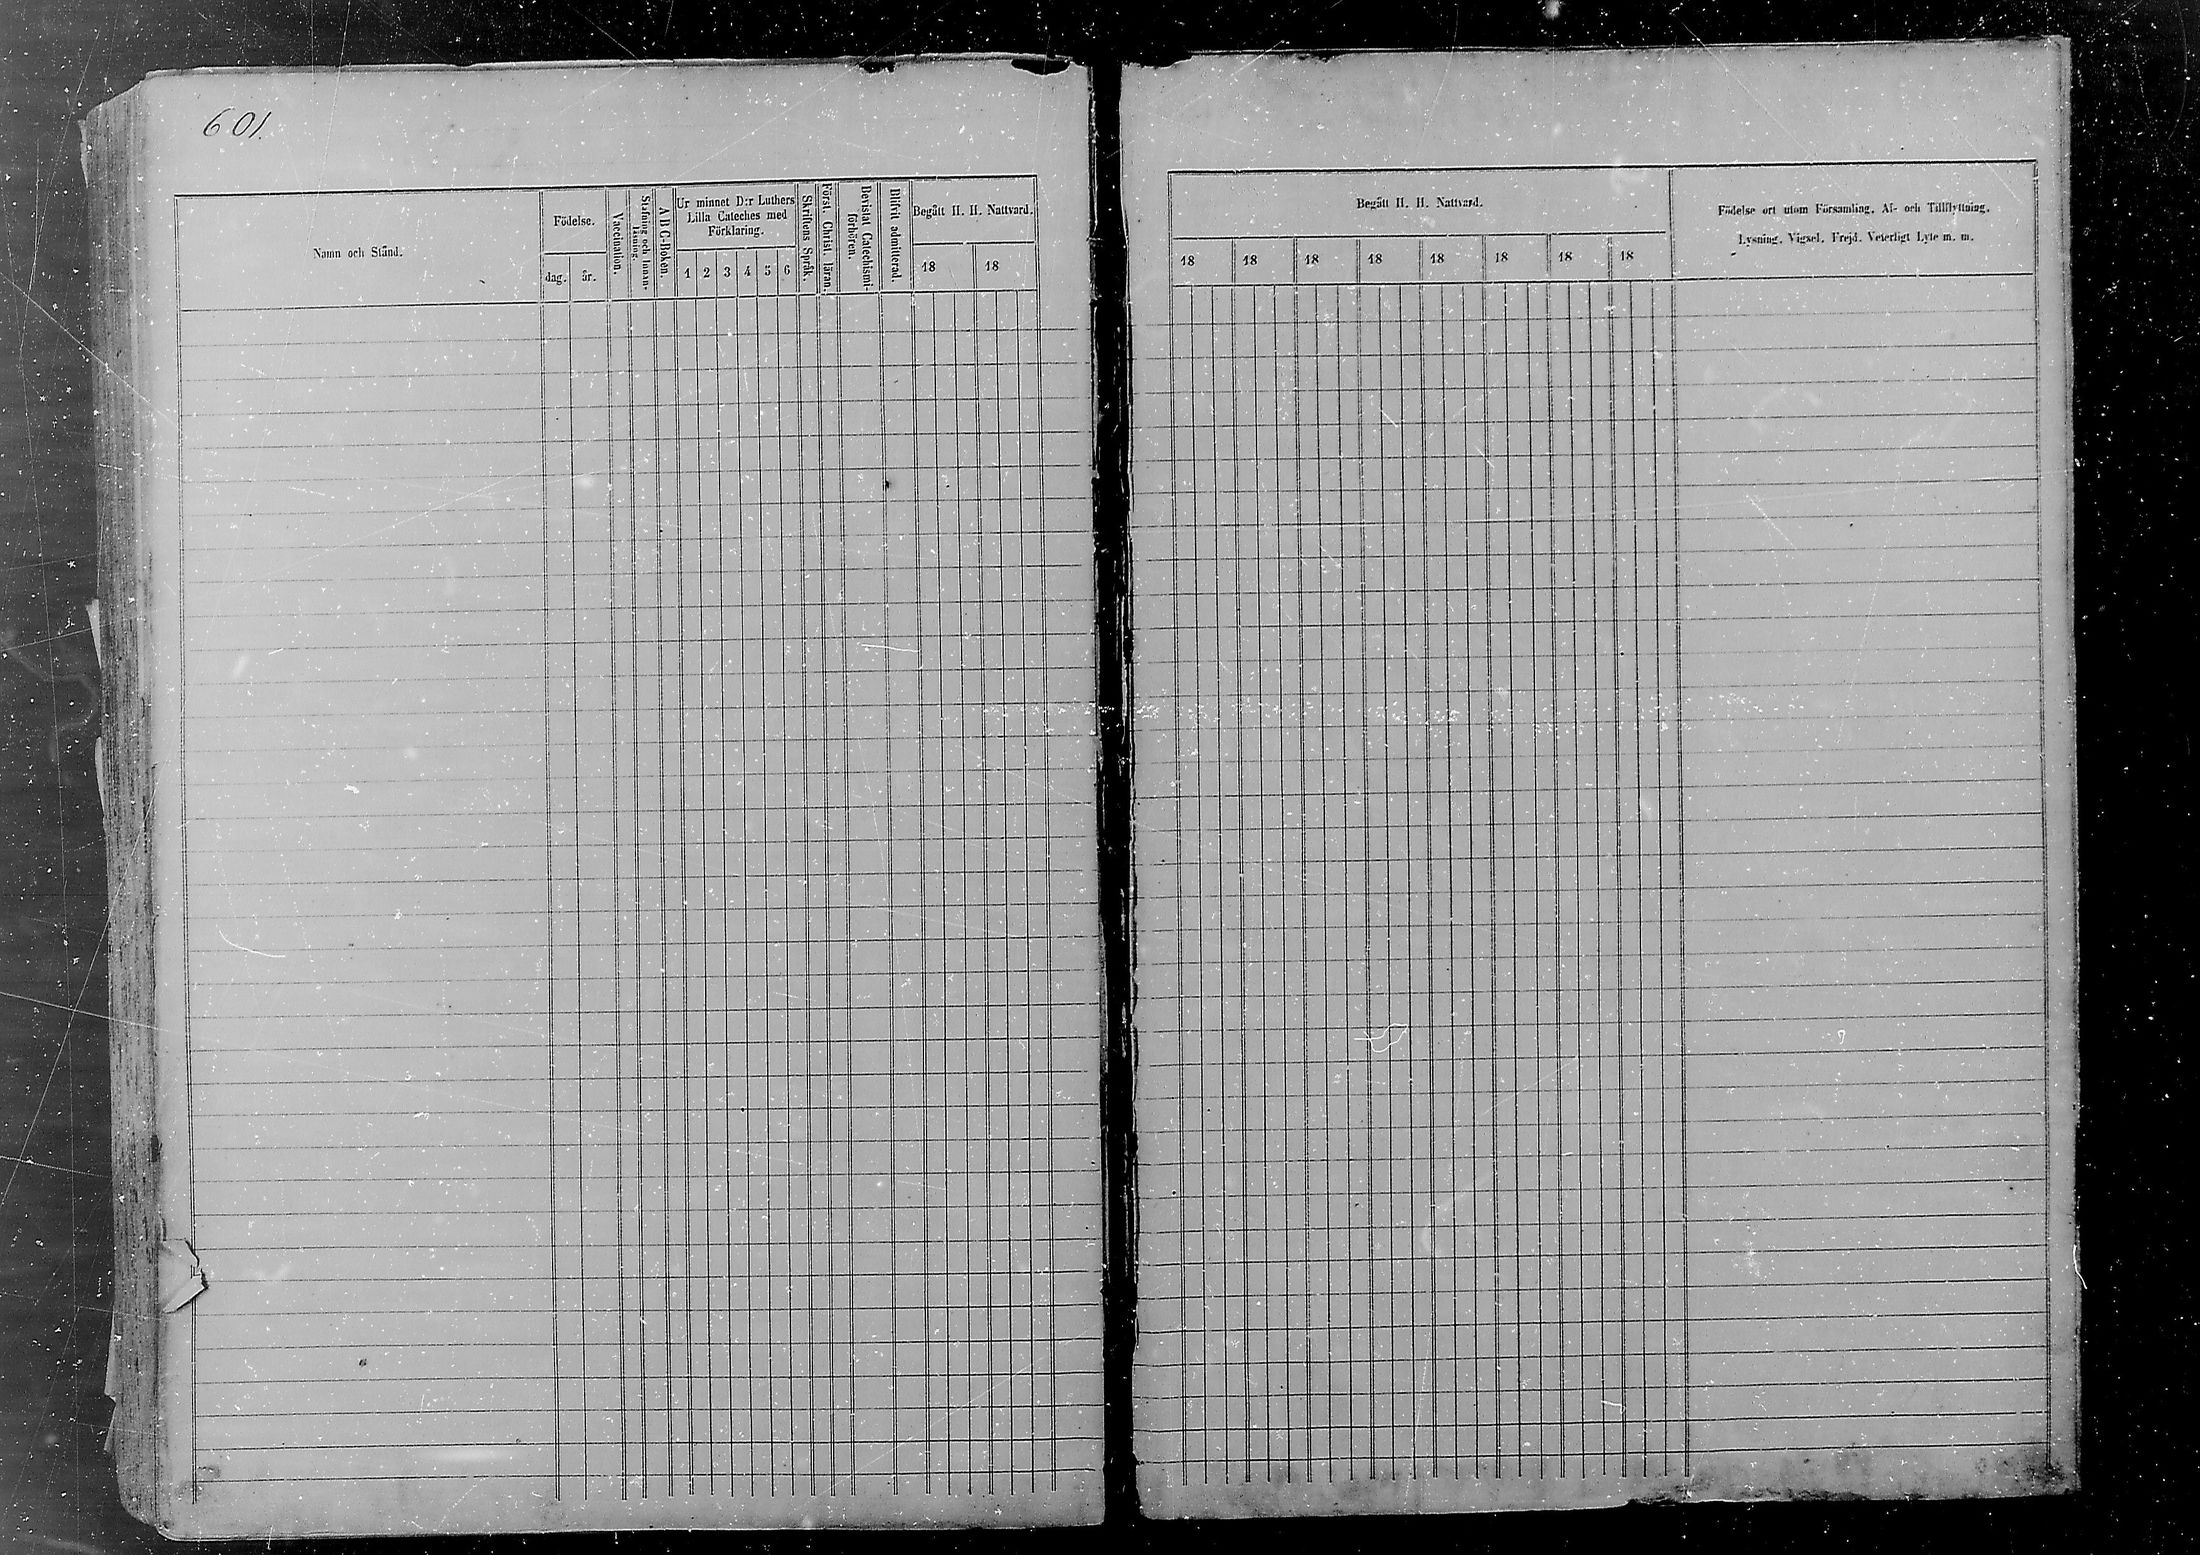 601.
Namn och Stånd.
Födelse.
dag. år.
Vaccination.
Stafning och Innan-
läsning.
ABC-Boken.
Ur minnet D:r Luthers
Lilla Cateches med
Förklaring.
1 2 3 4 5 6
Skriftens Språk.
Först. Christ. läran.
Bevistat Catechismi-
förhören.
Blifvit admitterad.
Begått H. H. Nattvard.
18 18
Begått H. H. Nattvard.
18 18 18 18 18 18 18 18
Födelse ort utom Församling. Af- och Tillflyttning.
Lysning. Vigsel. Frejd. Veterligt Lyte m. m.